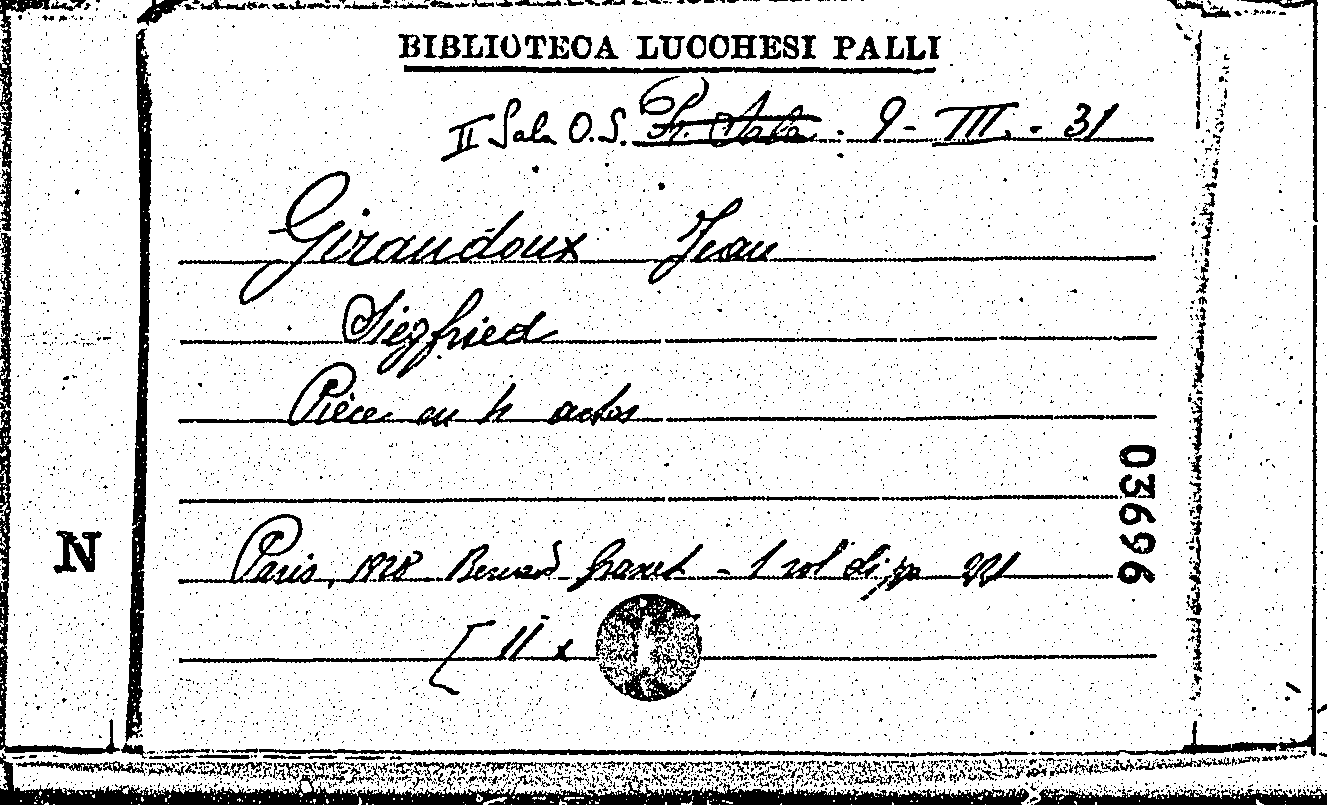 BIBLIOTECA LUCCHESI PALLI
II Sala O.S. - 9 - III. - 31
Giraudoux Jean
Siegfried
Pièce en 4 actes
Paris, 1928 Bernard Grasset - 1 vol di pp
[ 11 x
N
03696